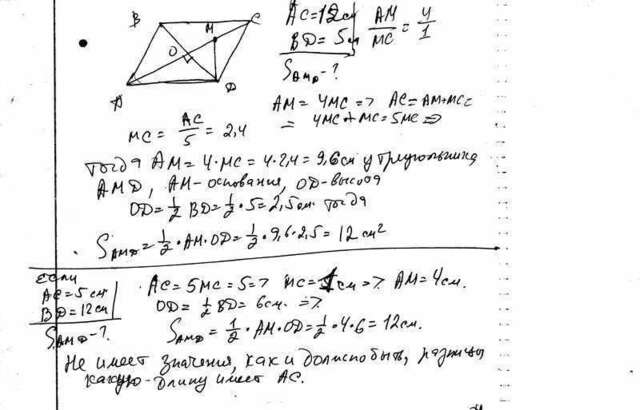 B C M O A D
AC=12см AM/MC = 4/1
BD=5см
S_AMD-?
AM=4MC => AC=AM+MC=
MC = AC/5 = 2,4 = 4MC+MC=5MC =>
тогда AM=4·MC=4·2,4=9,6см у треугольника
AMD, AM-основания, OD-высота
OD=1/2 BD=1/2·5=2,5см. тогда
S_AMD=1/2·AM·OD=1/2·9,6·2,5=12см²
если
AC=5см AC=5MC=5=> MC=1см=> AM=4см.
BD=12см OD=1/2BD=6см. =>
S_AMD-? S_AMD=1/2·AM·OD=1/2·4·6=12см.
Не имеет значения, как и должно быть, разницы
какую-длину имеет AC.